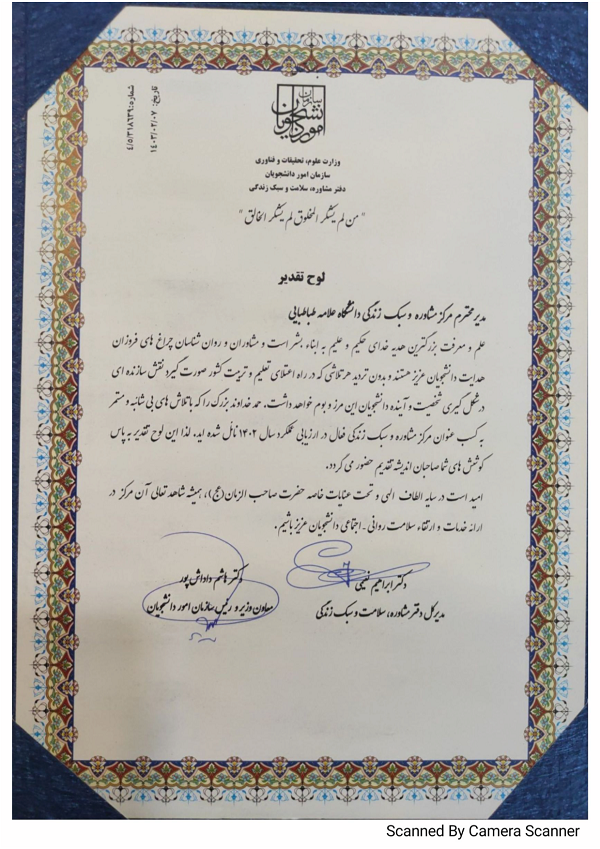 شماره: ۴/۵/۳۱۸۶۳۹
تاریخ: ۱۴۰۳/۰۲/۰۷
سازمان
امور دانشجویان
وزارت علوم، تحقیقات و فناوری
سازمان امور دانشجویان
دفتر مشاوره، سلامت و سبک زندگی
"من لم یشکر المخلوق لم یشکر الخالق"
لوح تقدیر
مدیر محترم مرکز مشاوره و سبک زندگی دانشگاه علامه طباطبایی
علم و معرفت بزرگترین هدیه خدای حکیم و علیم به ابناء بشر است و مشاوران و روان شناسان چراغ های فروزان
هدایت دانشجویان عزیز هستند و بدون تردید هر تلاشی که در راه اعتلای تعلیم و تربیت کشور صورت گیرد نقش سازنده ای
در شکل گیری شخصیت و آینده دانشجویان این مرز و بوم خواهد داشت. حمد خداوند بزرگ را که با تلاش های بی شائبه و مستمر
به کسب عنوان مرکز مشاوره و سبک زندگی فعال در ارزیابی عملکرد سال ۱۴۰۲ نائل شده اید. لذا این لوح تقدیر به پاس
کوشش های شما صاحبان اندیشه تقدیم حضور می گردد.
امید است در سایه الطاف الهی و تحت عنایات خاصه حضرت صاحب الزمان(عج)، همیشه شاهد تعالی آن مرکز در
ارائه خدمات و ارتقاء سلامت روانی - اجتماعی دانشجویان عزیز باشیم.
دکتر ابراهیم نعیمی
مدیرکل دفتر مشاوره، سلامت و سبک زندگی
دکتر هاشم داداش پور
معاون وزیر و رئیس سازمان امور دانشجویان
Scanned By Camera Scanner